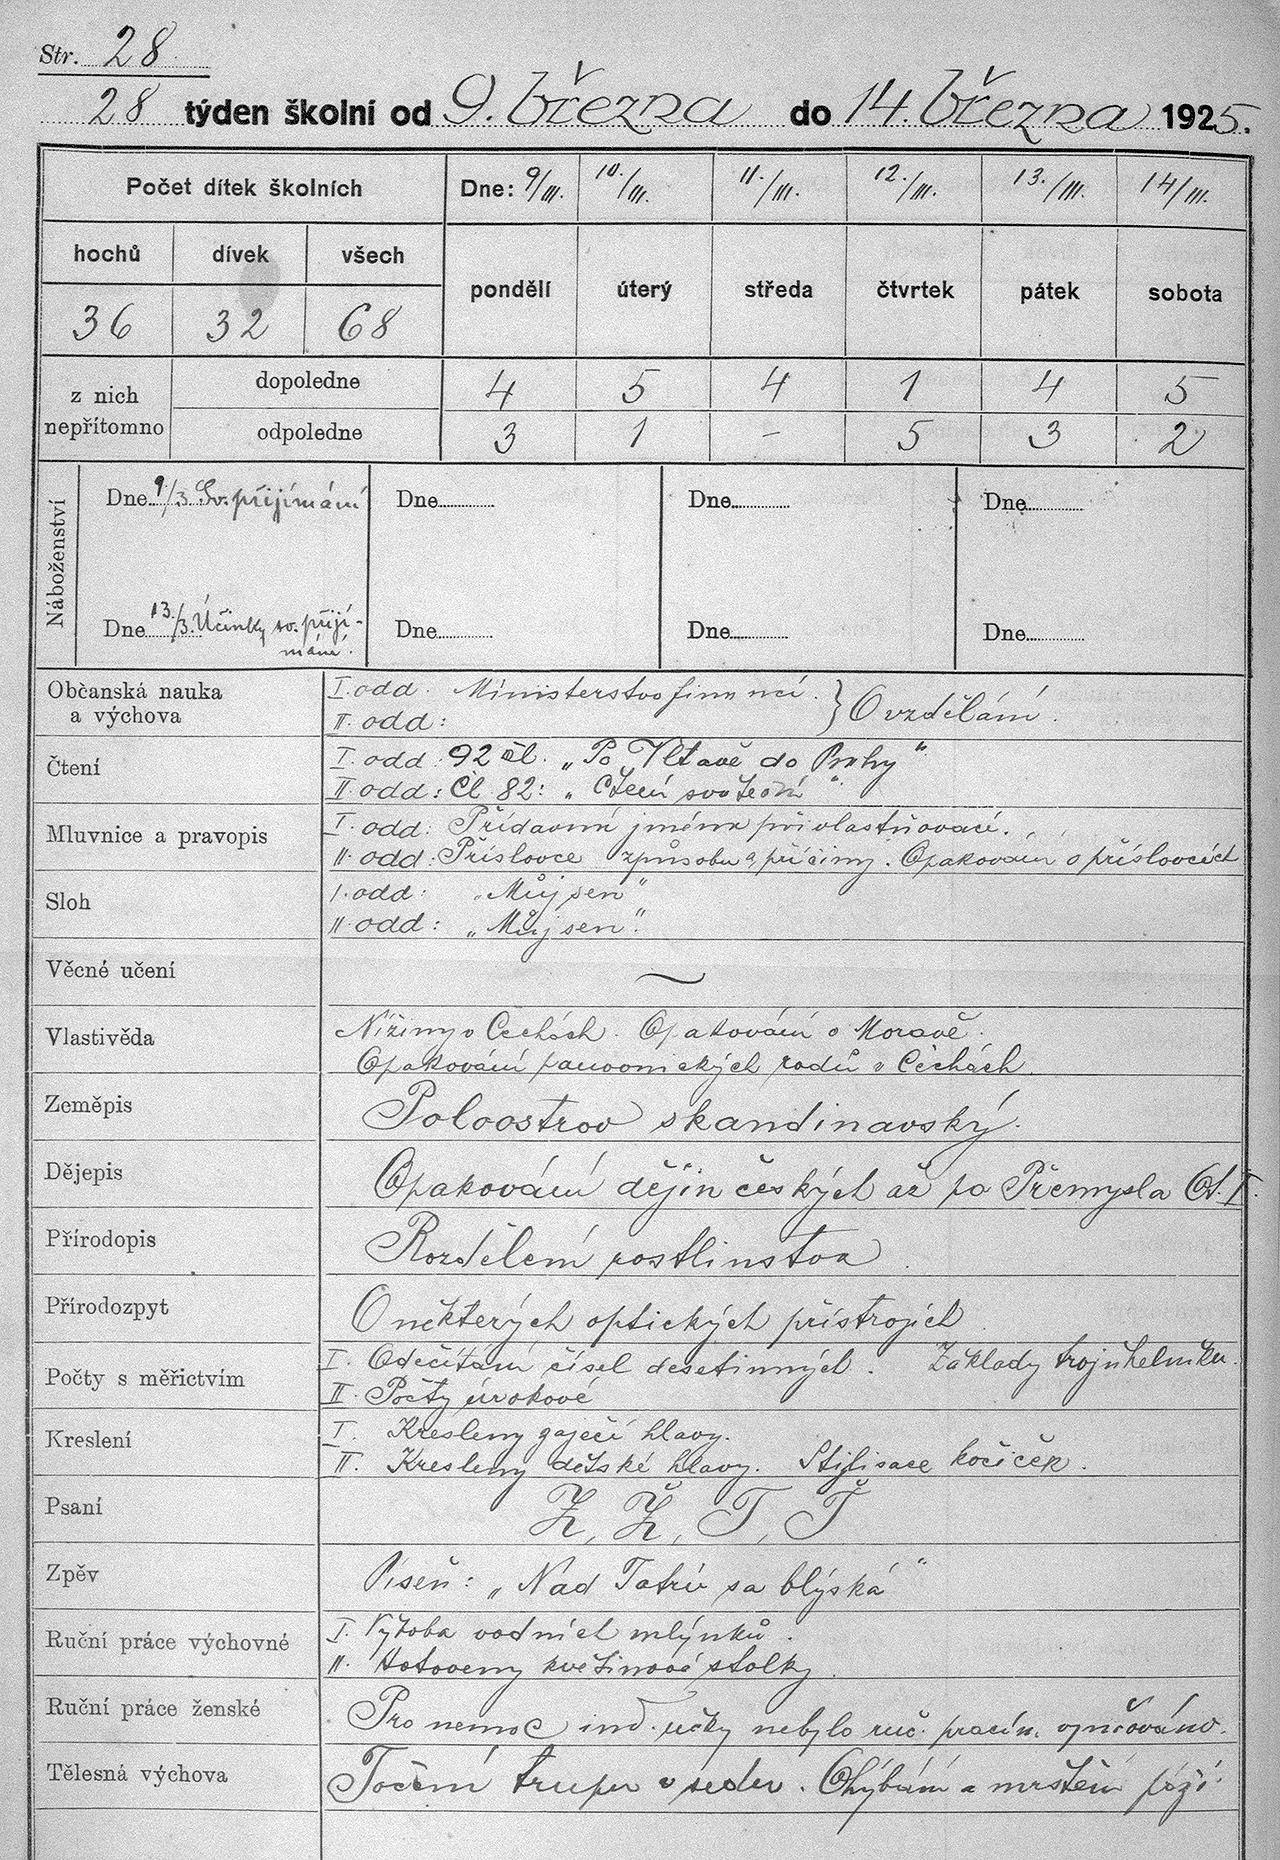 Str. 28
28 týden školní od 9. března do 14. března 1925.
Počet dítek školních Dne: 9/III. 10./III. 11./III. 12./III. 13./III. 14/III.
hochů dívek všech pondělí úterý středa čtvrtek pátek sobota
36 32 68
z nich nepřítomno
dopoledne 4 5 4 1 4 5
odpoledne 3 1 - 5 3 2
Náboženství
Dne 9/3 Sv. přijímání Dne Dne Dne
Dne 13./3. Účinky sv. přijí-
mání. Dne Dne Dne
Občanská nauka
a výchova
I. odd. Ministerstvo financí. } O vzdělání.
II. odd:
Čtení
I. odd: 92 čl. „Po Vltavě do Prahy"
II. odd: Čl. 82: „Čtení
Mluvnice a pravopis
I. odd: Přídavná jména přivlastňovací.
II. odd: Příslovce způsobu a příčiny. Opakování o příslovcích
Sloh
I. odd: „Můj sen"
II. odd: „Můj sen".
Věcné učení
Vlastivěda
Nížiny v Čechách. Opakování o Moravě.
Opakování panovnických rodů v Čechách.
Zeměpis
Poloostrov skandinavský.
Dějepis
Opakování dějin českých až po Přemysla Ot. I.
Přírodopis
Rozdělení rostlinstva
Přírodozpyt
O některých optických přístrojích
Počty s měřictvím
I. Odečítání čísel desetinných. Základy trojúhelníku.
II. Počty úrokové
Kreslení
I. Kresleny hlavy.
II. Kresleny dětské hlavy. Stylisace kočiček.
Psaní
Z, Ž, T, Ť
Zpěv
Píseň: „Nad Tatrú sa blýská"
Ruční práce výchovné
I. Výroba vodních mlýnků.
II. Hotoveny květinové stolky
Ruční práce ženské
Pro nemoc ind. učky nebylo ruč. pracím. vyučováno.
Tělesná výchova
Točení trupu v sedu. Ohýbání a mrštění paží.